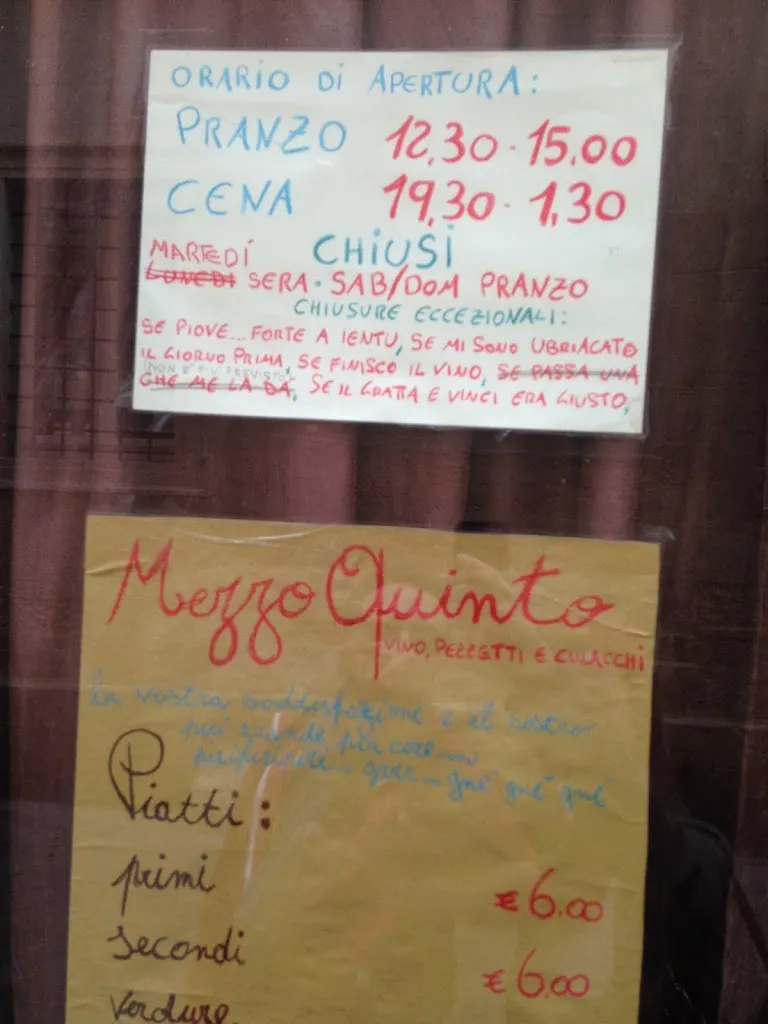 ORARIO DI APERTURA:
PRANZO 12,30 - 15,00
CENA 19,30 - 1,30
CHIUSI
MARTEDÍ
LUNEDI SERA - SAB/DOM PRANZO
CHIUSURE ECCEZIONALI:
SE PIOVE... FORTE A IENTU, SE MI SONO UBRIACATO
IL GIORNO PRIMA, SE FINISCO IL VINO, SE PASSA UNA
(NON È PIÙ PREVISTO)
CHE ME LA DÁ, SE IL GRATTA E VINCI ERA GIUSTO,
Mezzo Quinto
VINO, PEZZETTI E CULACCHI
la vostra soddisfazione è il nostro
più grande piacere...
gné gné gné
Piatti:
primi € 6.00
secondi € 6.00
verdure